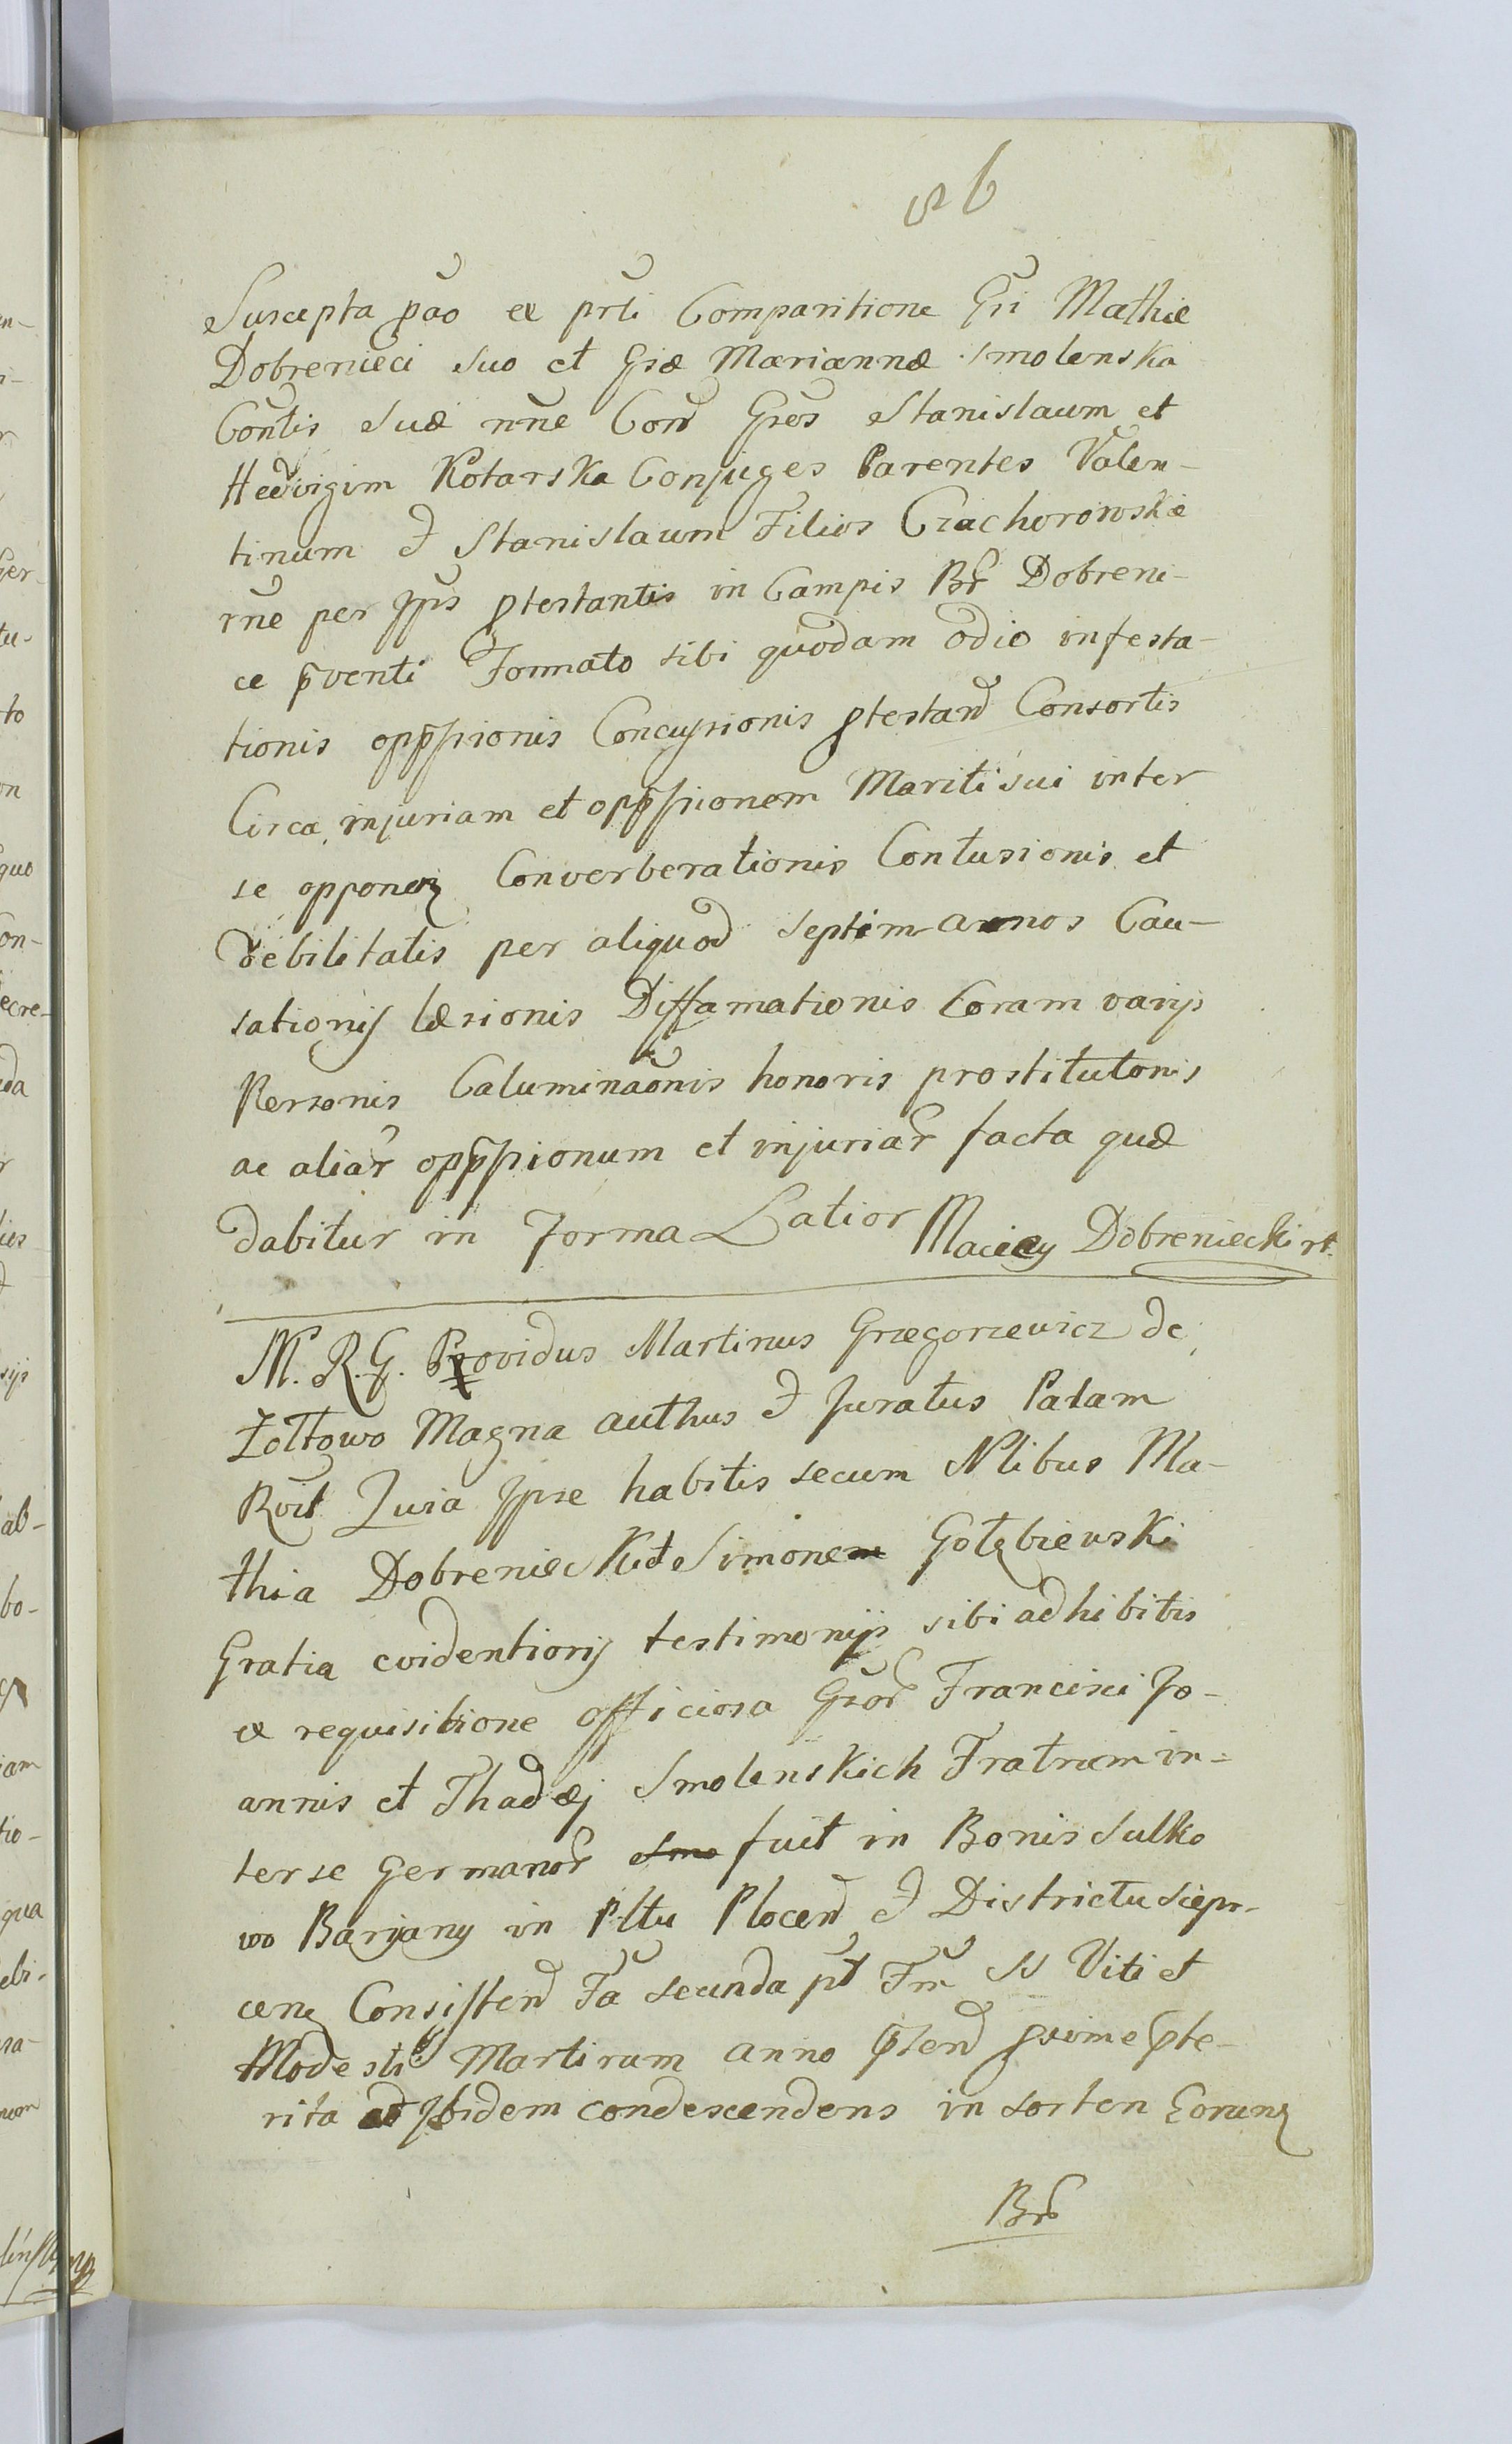 56
Suscepta pão ex prti Comparitione Gri Mathiæ
Dobrenieci suo et Græ Mariannæ Smolenska
Contis suæ nñe Con̄ Gros Stanislaum et
Hedvigim Kotarska Conjuges Parentes Valen-
tinum & Stanislaum Filios Czachorowskie
rñe per Jps ptestantis in Campis Br Dobreni-
ce pventi Formato sibi quodam odio infesta-
tionis oppssionis Concussionis ptestand Consortis
Circa injuriam et oppssionem Mariti sui inter
se opponen Converberationis Contusionis et
debilitatis per aliquod septimannos Cau-
sationis læsionis Diffamationis Coram varijs
Personis Caluminaonis honoris prostitutonis
ac aliar oppssionum et injuriar facta quæ
dabitur in Forma Latior Maciey Dobreniecki
M. R. G. Providus Martinus Grzegorzewicz de
Żołtowo Magna authus & Juratus Palam
Rvit Quia Jpse habitis secum Nlibus Ma-
thia Dobreniecki et Simone Gołębiewski
Gratia evidentioris testimonijs sibi adhibitis
ex requisitione officiosa Gror Francisci Jo-
annis et Thadæj Smolenskich Fratrum in-
ter se Germanor Smo fuit in Bonis Sulko
wo Bariany in Pltu Plocen & Districtu Siepr-
cen Consisten Fa secunda pt Fm SS Viti et
Modesti Martirum anno pten pxime pte-
rita ad Jbidem condescendens in sorten Eorum
Br